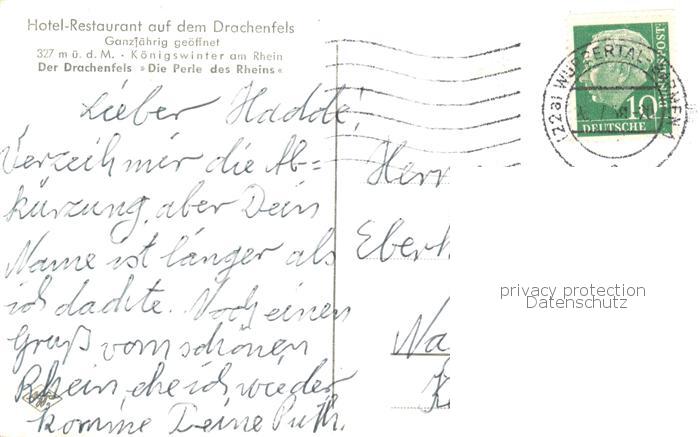 Hotel-Restaurant auf dem Drachenfels
Ganzjährig geöffnet
327 m ü. d. M. · Königswinter am Rhein
Der Drachenfels »Die Perle des Rheins«
Lieber Hadde!
Verzeih mir die Ab=
kürzung, aber Dein
Name ist länger als
ich dachte. Noch einen
Gruß vom schönen
Rhein, ehe ich wieder
komme Deine Ruth.
(22a) WUPPERTAL-BARMEN
10
DEUTSCHE
BUNDESPOST
Herr
Eberh
Na
privacy protection
Datenschutz